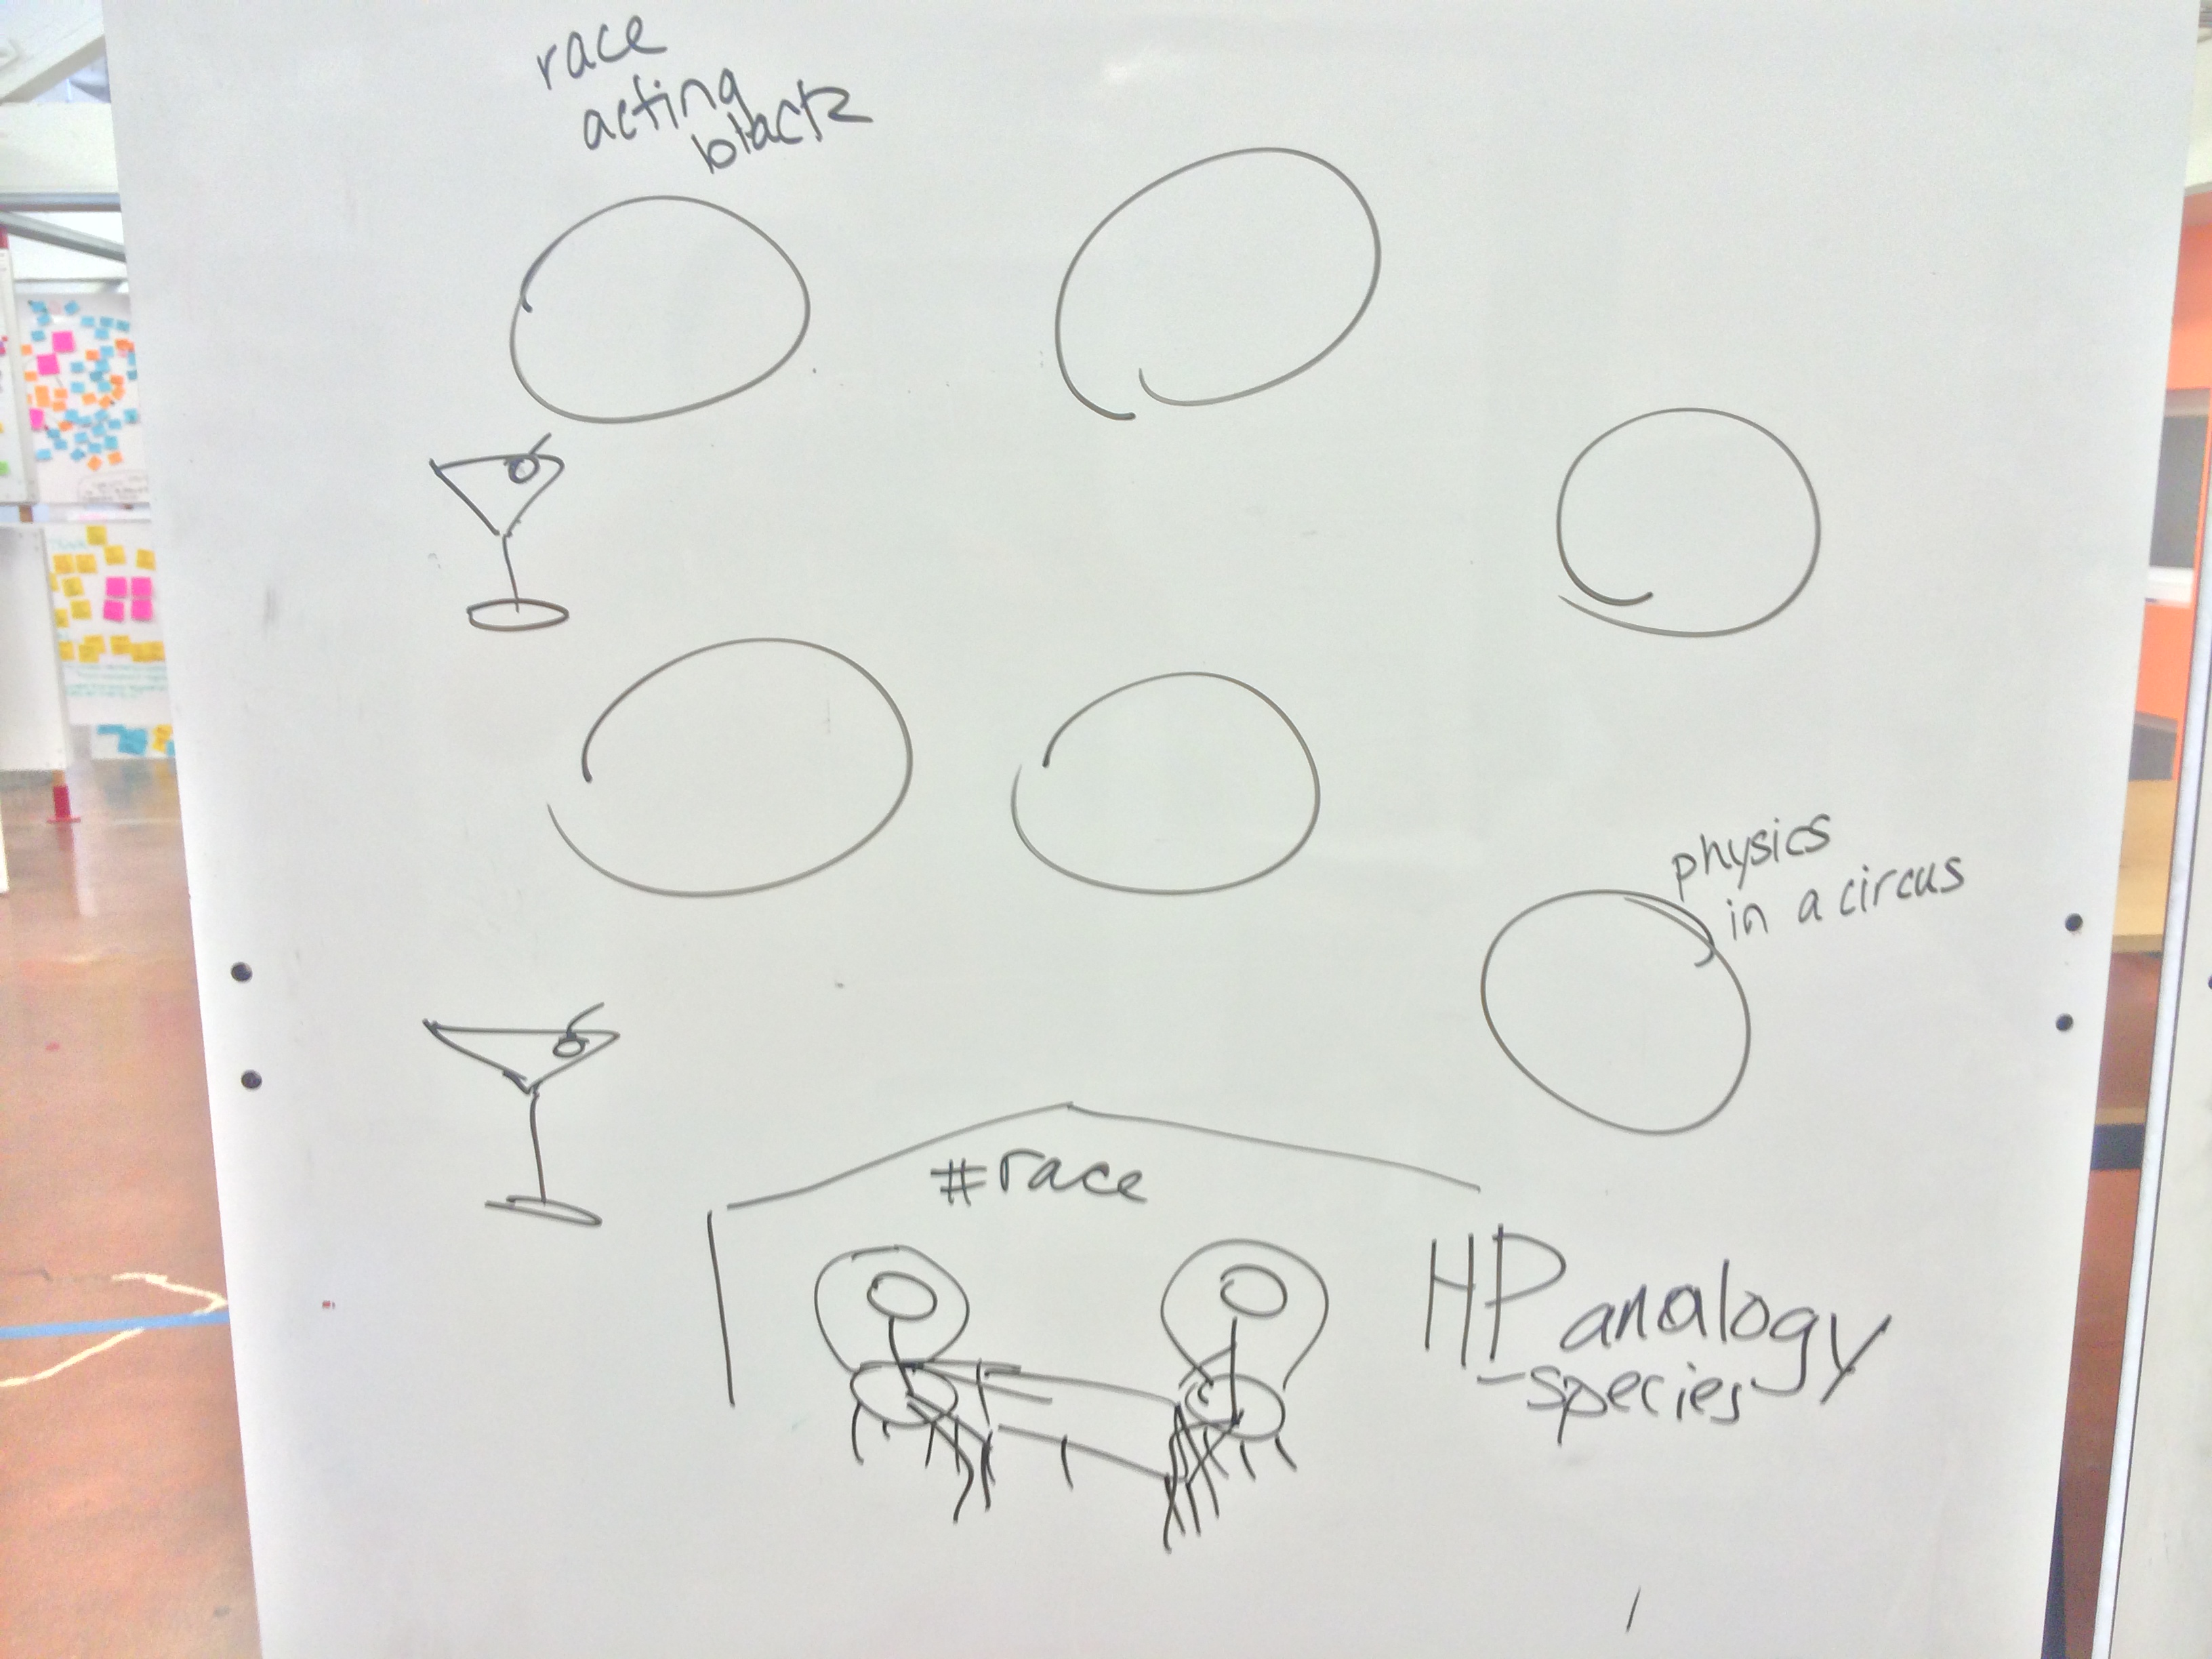 race
acting
black
physics
in a circus
#race
HP analogy
-species